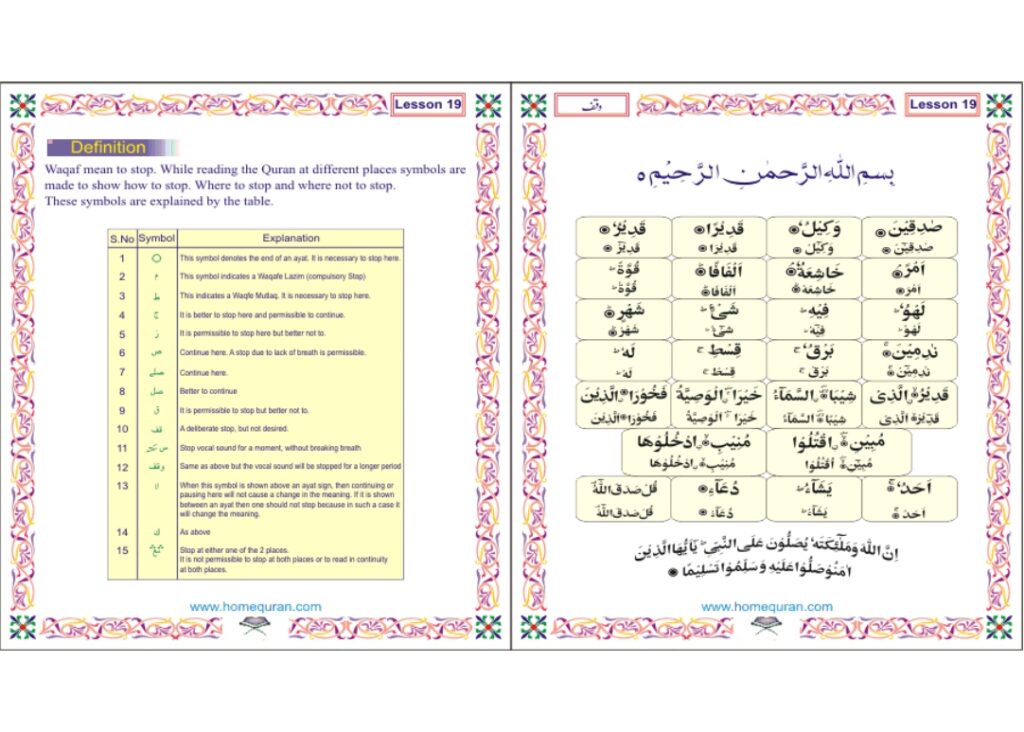 Lesson 19
Definition
Waqaf mean to stop. While reading the Quran at different places symbols are
made to show how to stop. Where to stop and where not to stop.
These symbols are explained by the table.
S.No Symbol Explanation
1 ○ This symbol denotes the end of an ayat. It is necessary to stop here.
2 م This symbol indicates a Waqafe Lazim (compulsory Stop)
3 ط This indicates a Waqfe Mutlaq. It is necessary to stop here.
4 ج It is better to stop here and permissible to continue.
5 ز It is permissible to stop here but better not to.
6 ص Continue here. A stop due to lack of breath is permissible.
7 صلے Continue here.
8 صل Better to continue
9 ق It is permissible to stop but better not to.
10 قف A deliberate stop, but not desired.
11 س سكتة Stop vocal sound for a moment, without breaking breath
12 وقفة Same as above but the vocal sound will be stopped for a longer period
13 لا When this symbol is shown above an ayat sign, then continuing or
pausing here will not cause a change in the meaning. If it is shown
between an ayat then one should not stop because in such a case it
will change the meaning.
14 ك As above
15 Stop at either one of the 2 places.
It is not permissible to stop at both places or to read in continuity
at both places.
www.homequran.com
وقف
Lesson 19
بِسْمِ اللّٰهِ الرَّحْمٰنِ الرَّحِيْمِ ٥
صٰدِقِيْنَ وَكِيْلٌ قَدِيْرًا قَدِيْرٌ
صٰدِقِيْنْ وَكِيْلْ قَدِيْرَا قَدِيْرْ
اَمْرٌ خَاشِعَةً اَلْفَافًا قُوَّةً ط
اَمْرْ خَاشِعَهْ اَلْفَافَا قُوَّهْ ط
لَهْوٌ ط فِيْهِ ط شَيْءٍ ط شَهْرٍ
لَهْوْ ط فِيْهْ ط شَيْءْ ط شَهْرْ
نٰدِمِيْنَ بَرْقٌ ج قِسْطٍ ج لَهٗ ط
نٰدِمِيْنْ بَرْقْ ج قِسْطْ ج لَهْ ط
قَدِيْرُ الَّذِیْ شِيْبَا السَّمَآءُ خَيْرَا الْوَصِيَّةُ فَخُوْرَا الَّذِيْنَ
قَدِيْرْ الَّذِیْ شِيْبَا السَّمَآءُ خَيْرَا الْوَصِيَّةُ فَخُوْرَا الَّذِيْنَ
مُبِيْنِ اقْتُلُوْا مُنِيْبِ ادْخُلُوْهَا
مُبِيْنْ اُقْتُلُوْا مُنِيْبْ ادْخُلُوْهَا
اَحَدٌ يَشَآءُ ط دُعَآءِ قُلْ صَدَقَ اللّٰهُ
اَحَدْ يَشَآءْ ط دُعَآءْ قُلْ صَدَقَ اللّٰهْ
اِنَّ اللّٰهَ وَمَلٰٓئِكَتَهٗ يُصَلُّوْنَ عَلَى النَّبِيِّ ط يٰٓاَيُّهَا الَّذِيْنَ
اٰمَنُوْا صَلُّوْا عَلَيْهِ وَسَلِّمُوْا تَسْلِيْمًا
www.homequran.com